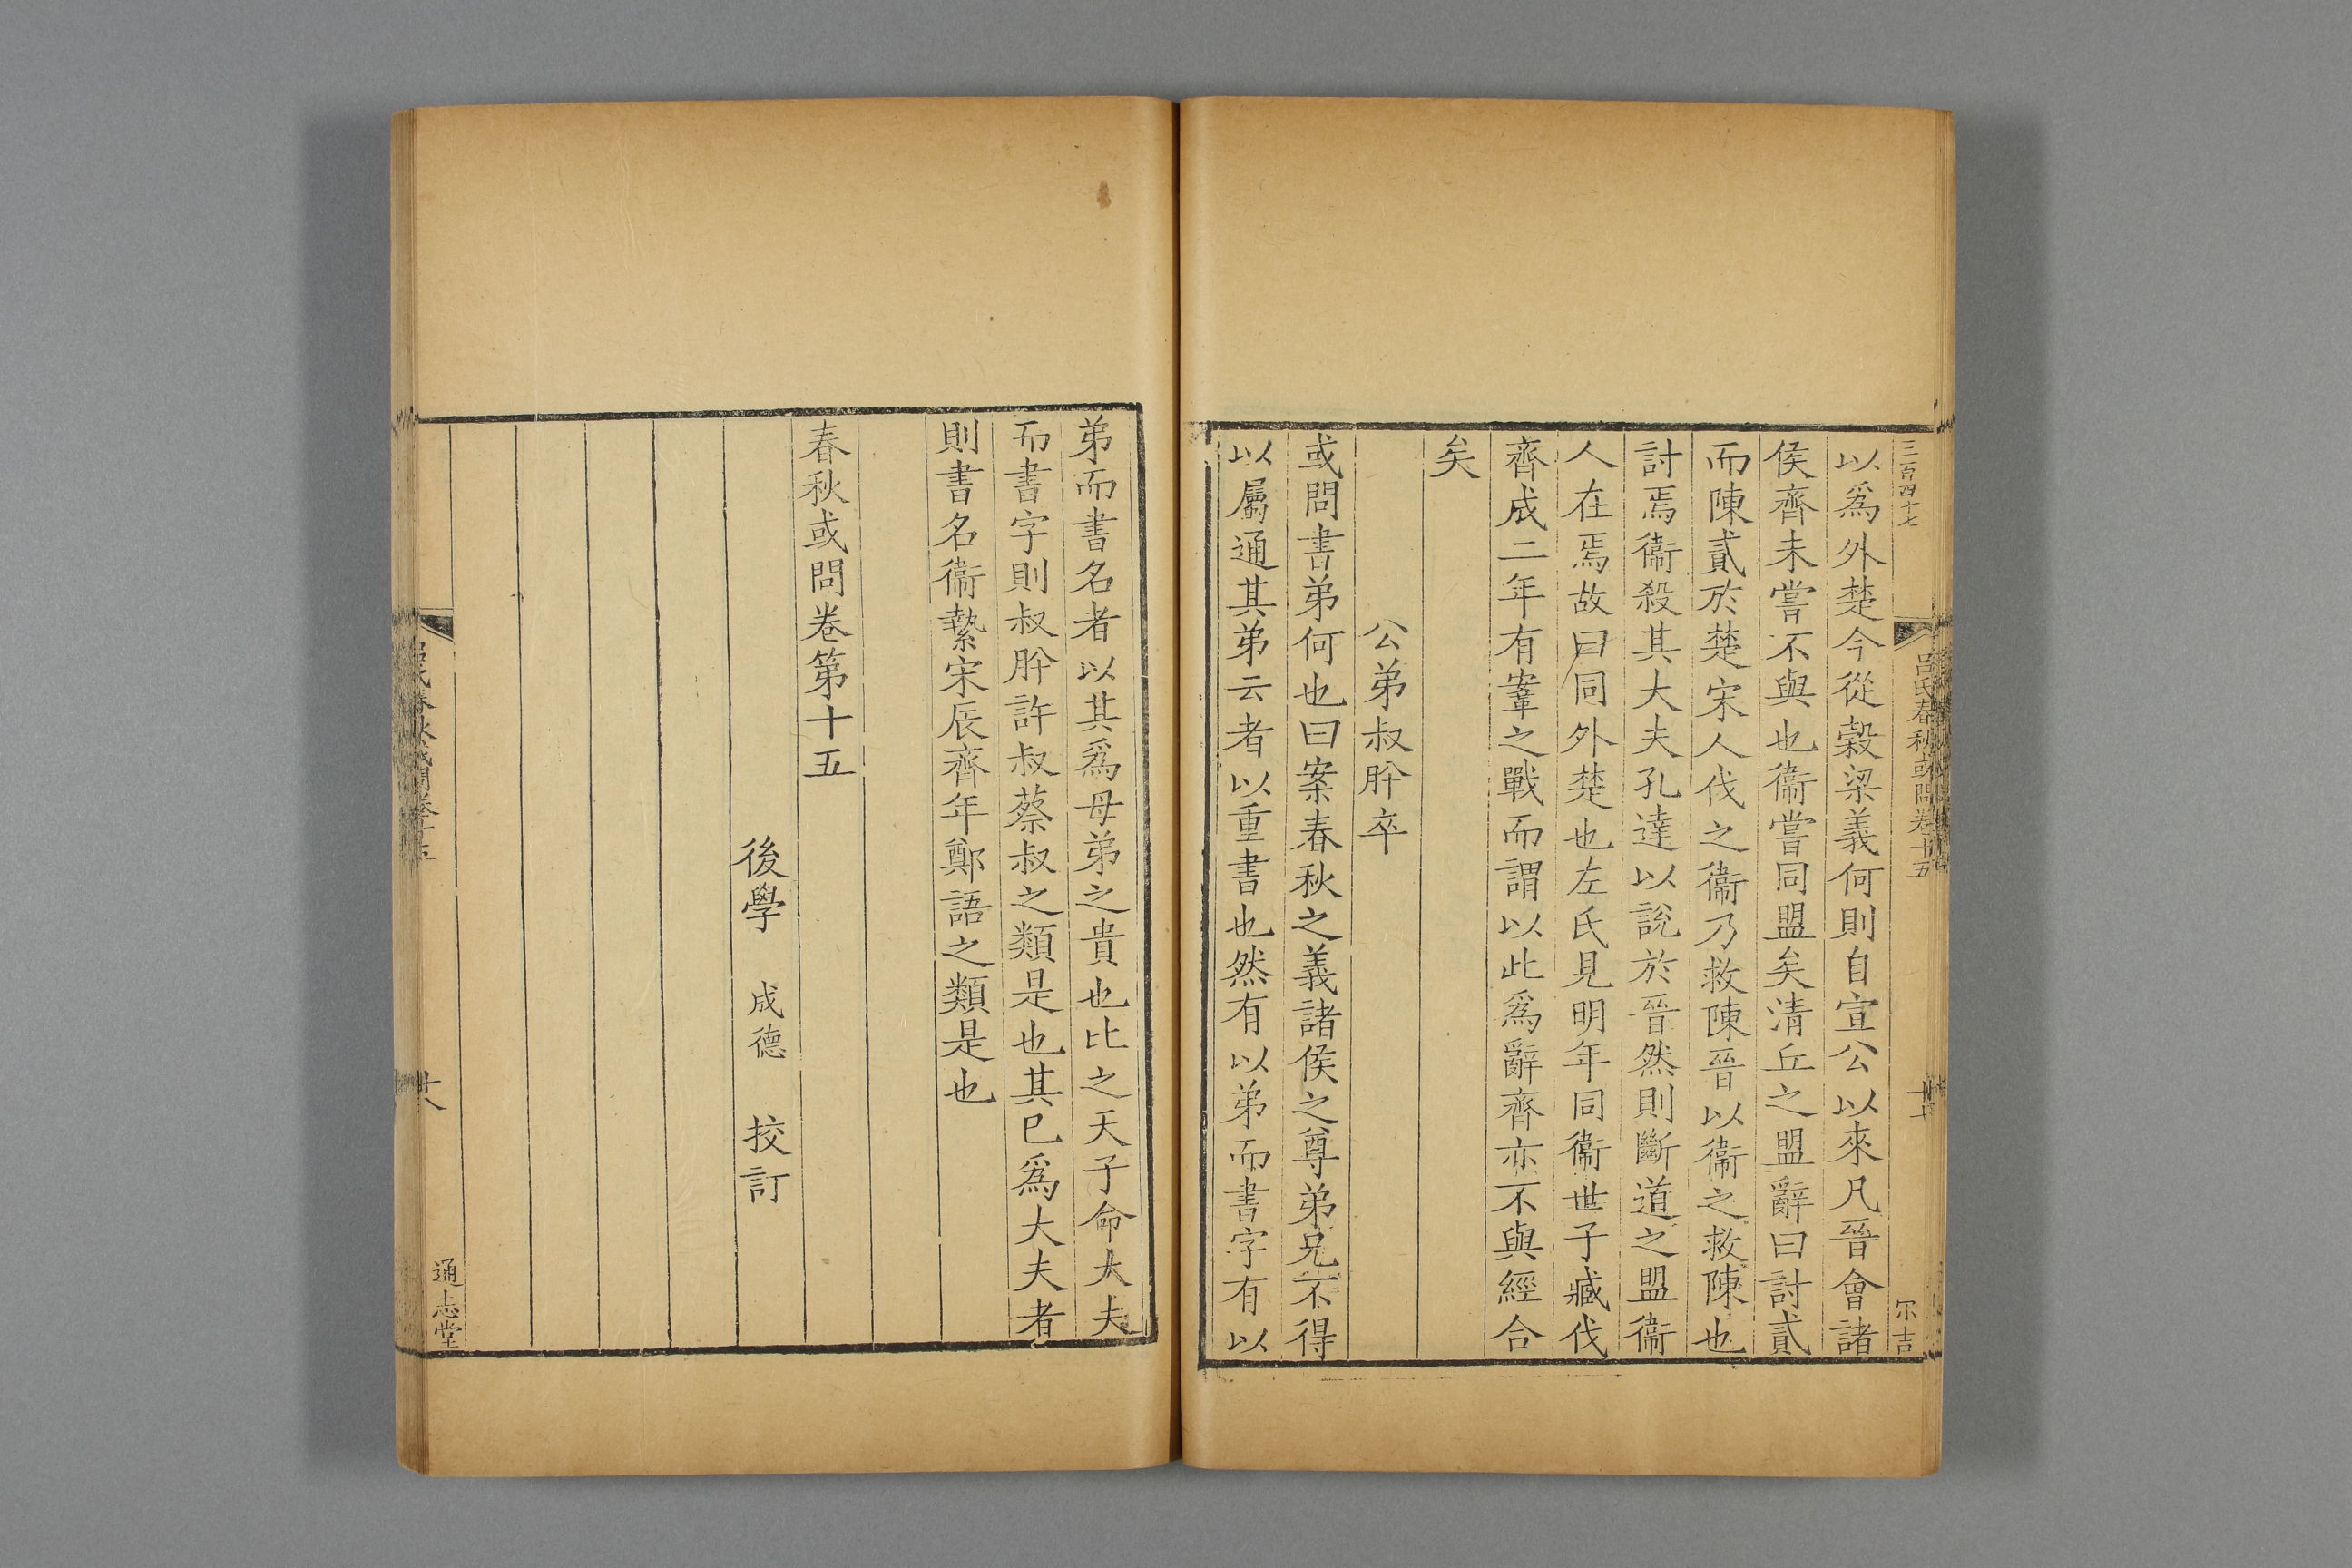 三百四十七
呂氏春秋或問卷十五
十七
以爲外楚今從榖梁義何則自宣公以來凡晉會諸
侯齊未嘗不與也衞嘗同盟矣清丘之盟辭曰討貳
而陳貳於楚宋人伐之衞乃救陳晉以衞之救陳也
討焉衞殺其大夫孔達以說於晉然則斷道之盟衞
人在焉故曰同外楚也左氏見明年同衞世子臧伐
齊成二年有鞌之戰而謂以此爲辭齊亦不與經合
矣
公弟叔肸卒
或問書弟何也曰案春秋之義諸侯之尊弟兄不得
以屬通其弟云者以重書也然有以弟而書字有以
弟而書名者以其爲母弟之貴也比之天子命大夫
而書字則叔肸許叔蔡叔之類是也其已爲大夫者
則書名衞縶宋辰齊年鄭語之類是也
春秋或問卷第十五
後學 成德 挍訂
呂氏春秋或問卷十五
十八
通志堂